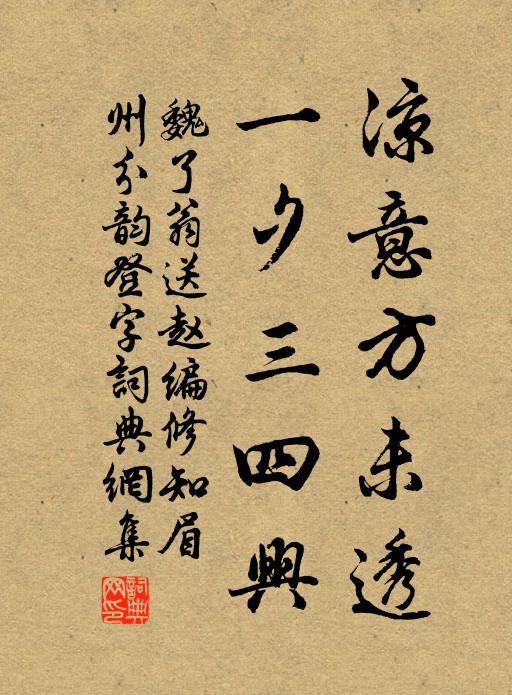 涼意方未透
一夕三四興
魏了翁送赵编修知眉
州分韵登字詞典網集
詞典网印